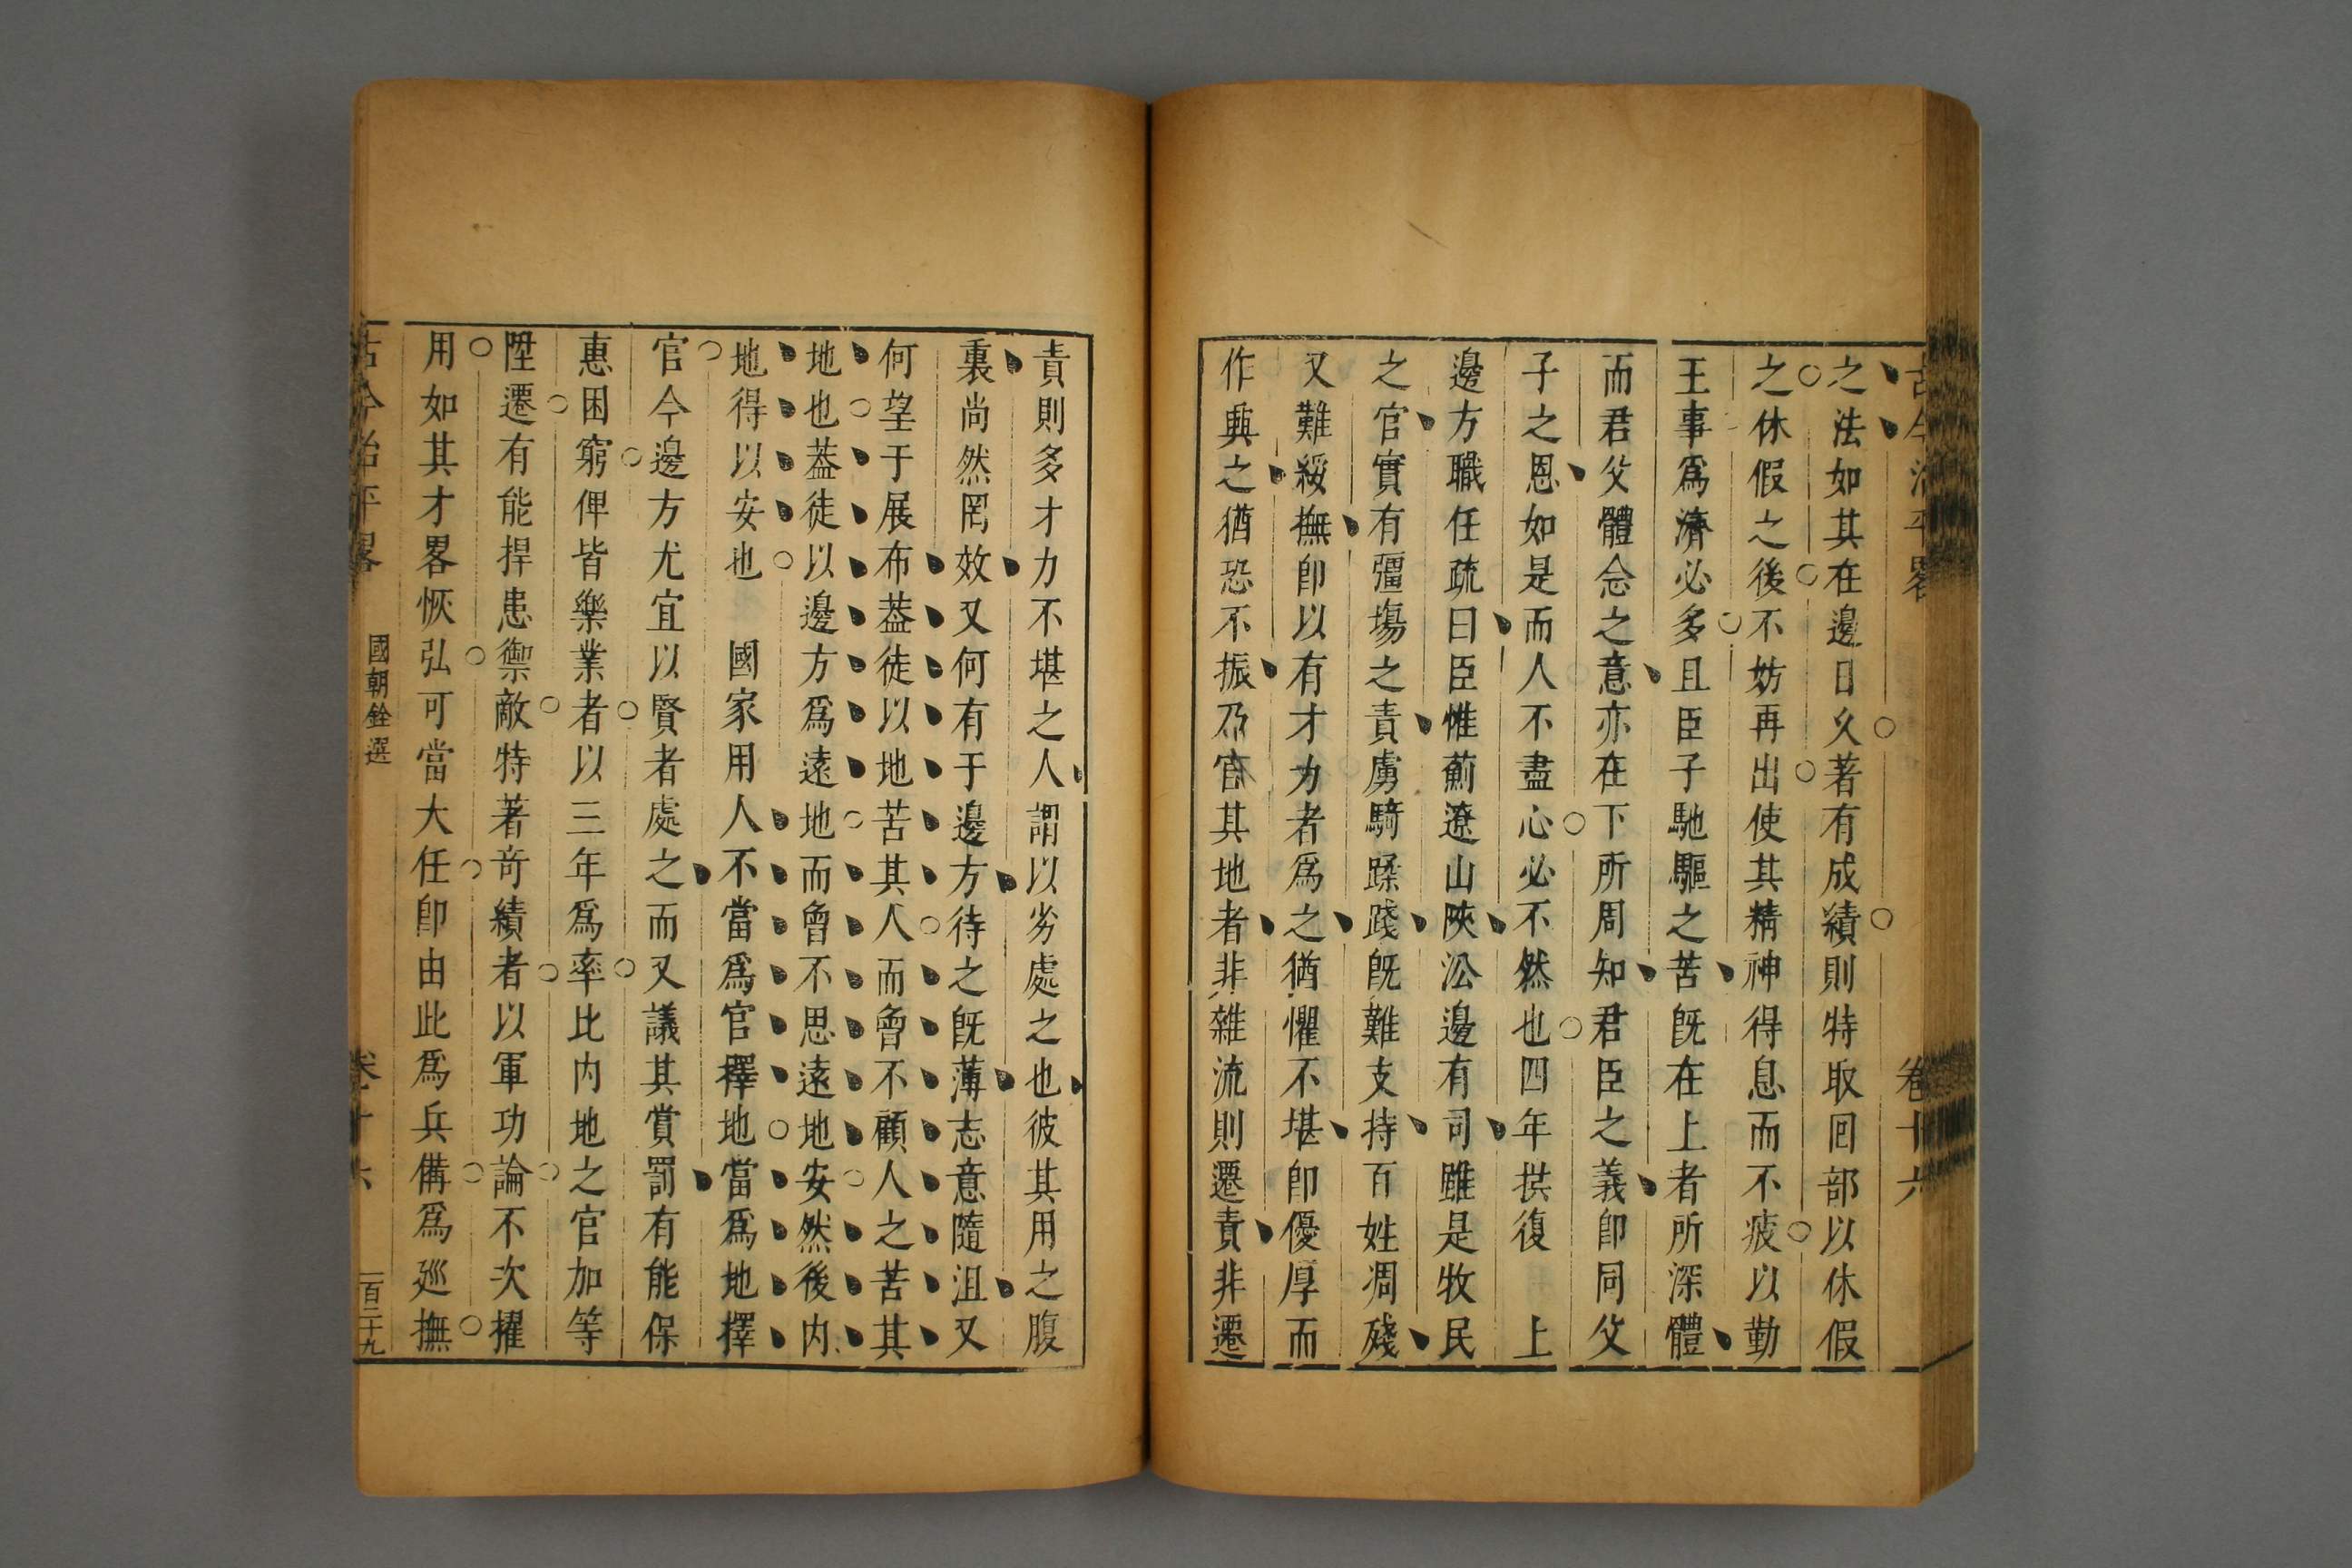 古今治平畧 卷十六
之法如其在邊日久著有成績則特取囘部以休假
之休假之後不妨再出使其精神得息而不疲以勤
王事爲濟必多且臣子馳驅之苦旣在上者所深體
而君父體念之意亦在下所周知君臣之義卽同父
子之恩如是而人不盡心必不然也四年拱復 上
邊方職任疏曰臣惟薊遼山陝㳂邊有司雖是牧民
之官實有彊塲之責虜騎蹂踐旣難支持百姓凋殘
又難綏撫卽以有才力者爲之猶懼不堪卽優厚而
作興之猶恐不振乃官其地者非雜流則遷責非遷
責則多才力不堪之人謂以劣處之也彼其用之腹
裏尚然罔效又何有于邊方待之旣薄志意隨沮又
何望于展布葢徒以地苦其人而曾不顧人之苦其
地也葢徒以邊方爲遠地而曾不思遠地安然後内
地得以安也 國家用人不當爲官擇地當爲地擇
官今邊方尤宜以賢者處之而又議其賞罰有能保
惠困窮俾皆樂業者以三年爲率比内地之官加等
陞遷有能捍患禦敵特著竒績者以軍功論不次擢
用如其才畧恢弘可當大任卽由此爲兵備爲廵撫
古今治平畧 國朝銓選 卷十六 一百二十九